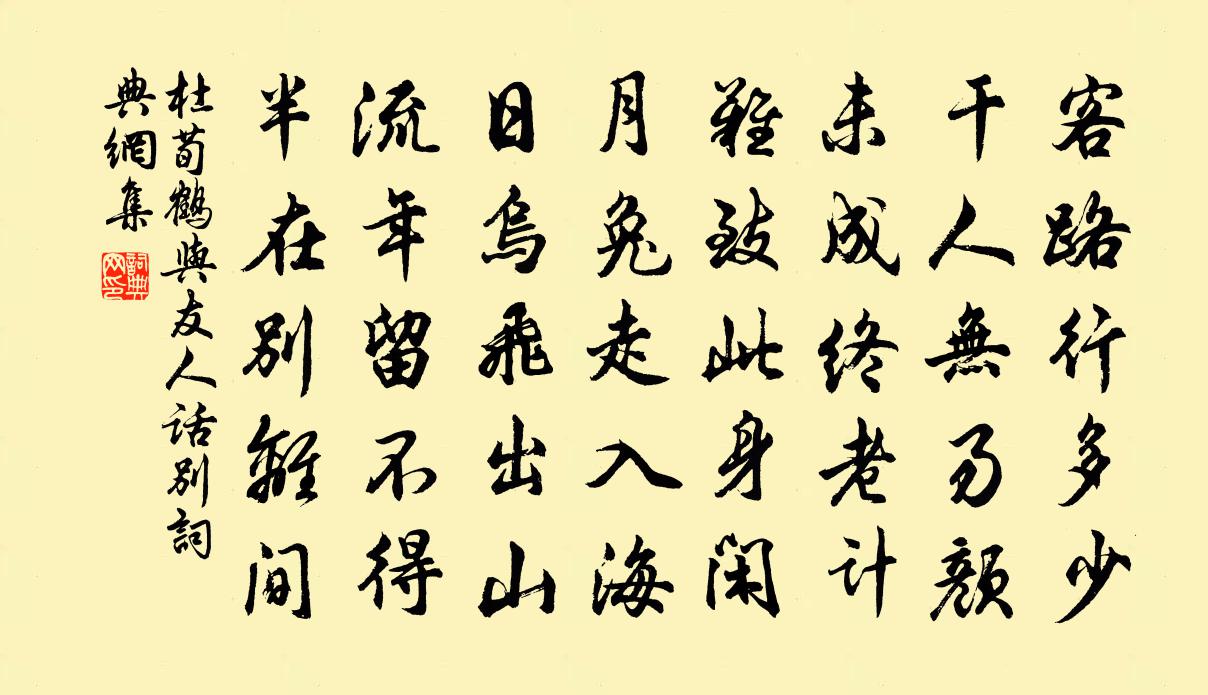 客路行多少
干人無易顏
未成終老計
難致此身閑
月兔走入海
日烏飛出山
流年留不得
半在別離間
杜荀鶴與友人話別詞
典網集
詞典
网印